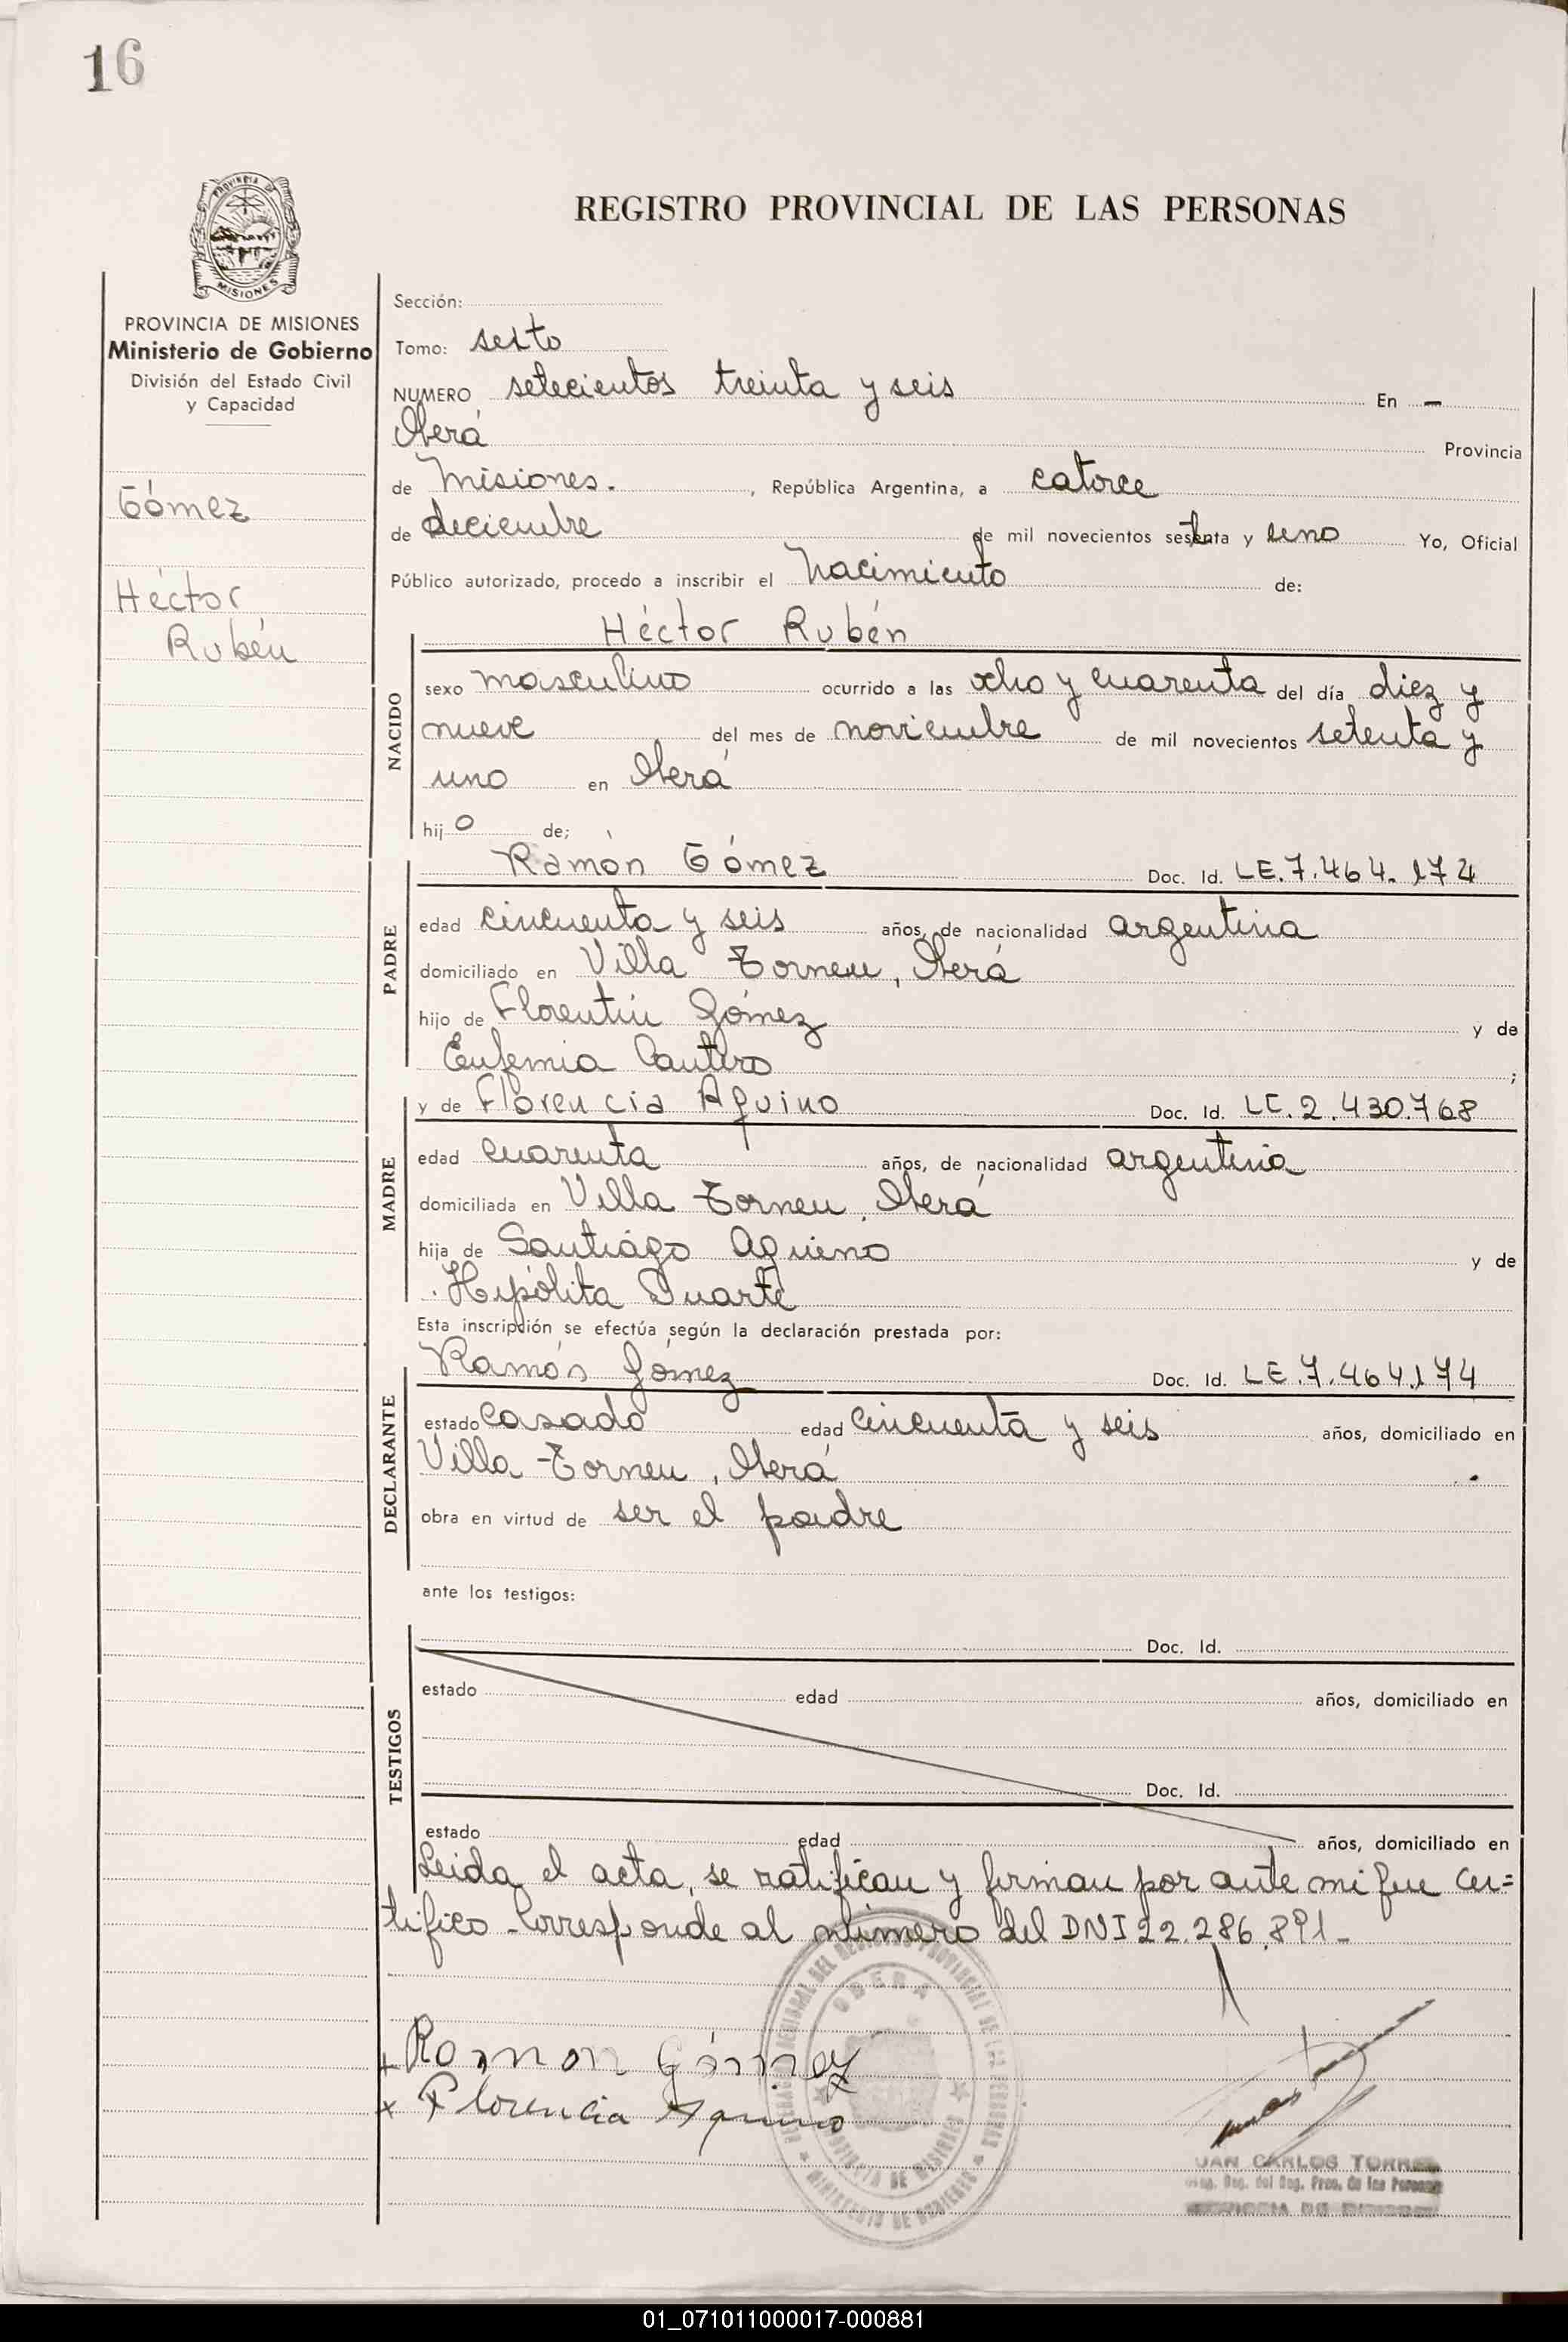 16
PROVINCIA DE
MISIONES
REGISTRO PROVINCIAL DE LAS PERSONAS
PROVINCIA DE MISIONES
Ministerio de Gobierno
División del Estado Civil
y Capacidad
Gómez
Héctor
Rubén
Sección:
Tomo: sexto
NUMERO setecientos treinta y seis En —
Oberá Provincia
de Misiones. , República Argentina, a catorce
de deciembre de mil novecientos setenta y uno Yo, Oficial
Público autorizado, procedo a inscribir el nacimiento de:
NACIDO
Héctor Rubén
sexo masculino ocurrido a las ocho y cuarenta del día diez y
nueve del mes de noviembre de mil novecientos setenta y
uno en Oberá
hijo de;
PADRE
Ramón Gómez Doc. Id. LE.7.464.174
edad cincuenta y seis años, de nacionalidad argentina
domiciliado en Villa Torneu, Oberá
hijo de Florentín Gómez y de
Eufemia Cantero ;
MADRE
y de Florencia Aquino Doc. Id. LC.2.430.768
edad cuarenta años, de nacionalidad argentina
domiciliada en Villa Torneu, Oberá
hija de Santiago Aquino y de
Hipólita Duarte
Esta inscripción se efectúa según la declaración prestada por:
DECLARANTE
Ramón Gómez Doc. Id. LE.7.464.174
estado casado edad cincuenta y seis años, domiciliado en
Villa Torneu, Oberá
obra en virtud de ser el padre
ante los testigos:
TESTIGOS
Doc. Id.
estado edad años, domiciliado en
Doc. Id.
estado edad años, domiciliado en
Leida el acta, se ratifican y firman por ante mi que cer=
tifico - Corresponde al número del DNI 22.286.891-
+ Ramon Gómez
x Florencia Aquino
OBERA
PROVINCIA DE MISIONES
MINISTERIO DE GOBIERNO
JUAN CARLOS TORRES
del Reg. Prov. de las Personas
PROVINCIA DE MISIONES
01_071011000017-000881